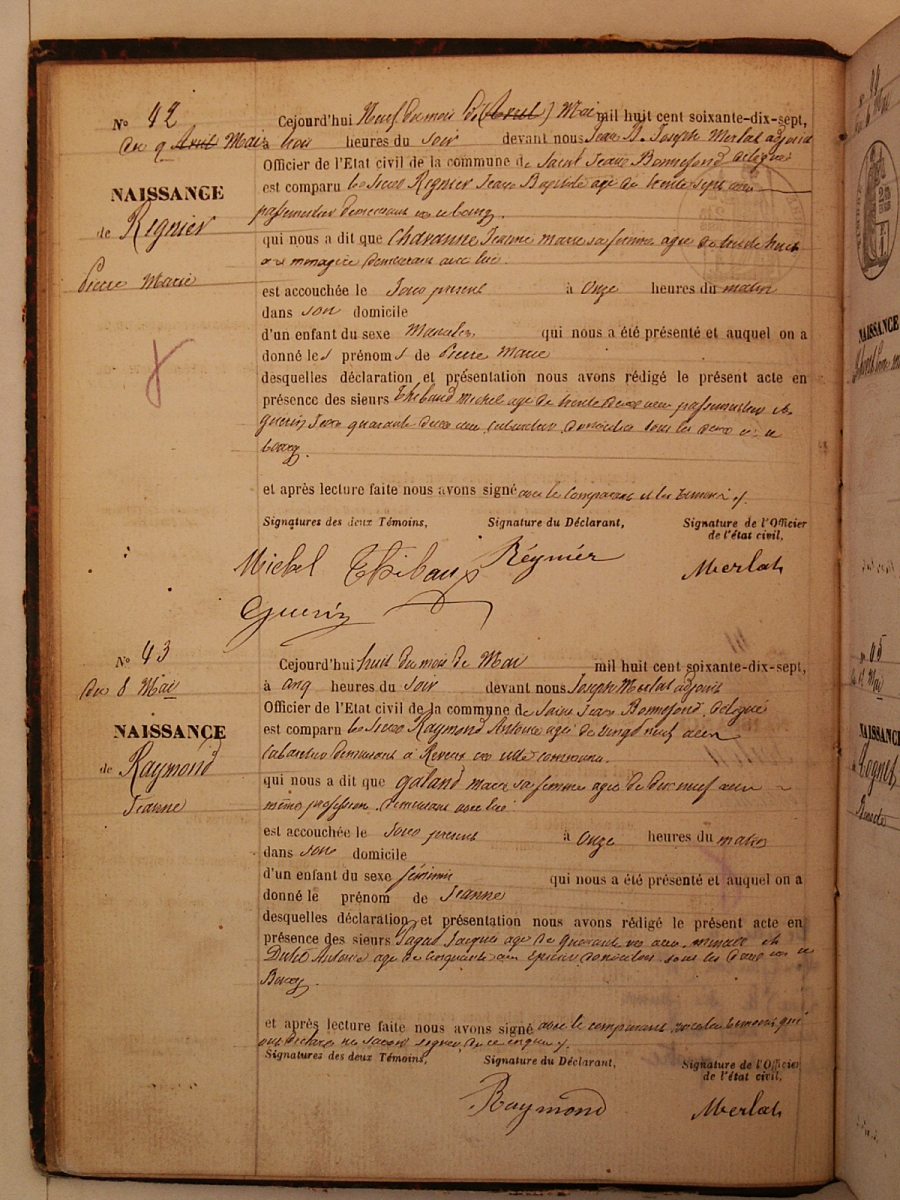 N° 42
du 9 Avril Mai
NAISSANCE
de Regnier
Pierre Marie
Cejourd'hui Neuf du mois d'(Avril) Mai mil huit cent soixante-dix-sept,
à trois heures du soir devant nous Jean Bte Joseph Merlat adjoint
Officier de l'Etat civil de la commune de Saint Jean Bonnefond délégué
est comparu le sieur Regnier Jean Baptiste agé de trente sept ans
passementier demeurant en ce bourg.
qui nous a dit que Chavanne Jeanne Marie sa femme agée de trente huit
ans ménagère demeurant avec lui.
est accouchée le Jour présent à Onze heures du matin
dans son domicile
d'un enfant du sexe Masculin qui nous a été présenté et auquel on a
donné les prénoms de Pierre Marie
desquelles déclaration et présentation nous avons rédigé le présent acte en
présence des sieurs Thibaud Michel agé de trente deux ans passementier et
Guerin Jean quarante deux ans cabaretier domiciliés tous les deux en ce
bourg.
et après lecture faite nous avons signé avec le comparant et les témoins
Signatures des deux Témoins, Signature du Déclarant, Signature de l'Officier
de l'état civil,
Michel Thibaud Régnier Merlat
Guerin
N° 43
du 8 Mai
NAISSANCE
de Raymond
Jeanne
Cejourd'hui huit du mois de Mai mil huit cent soixante-dix-sept,
à cinq heures du soir devant nous Joseph Merlat adjoint
Officier de l'Etat civil de la commune de Saint Jean Bonnefond, délégué
est comparu le sieur Raymond Antoine agé de vingt neuf ans
cabaretier demeurant à en cette commune.
qui nous a dit que Galand Marie sa femme agée de dix neuf ans
même profession demeurant avec lui
est accouchée le Jour présent à Onze heures du matin
dans son domicile
d'un enfant du sexe féminin qui nous a été présenté et auquel on a
donné le prénom de Jeanne
desquelles déclaration et présentation nous avons rédigé le présent acte en
présence des sieurs Jacques agé de quarante ans mineur et
Antoine agé de cinquante ans épicier domiciliés tous les deux en ce
Bourg.
et après lecture faite nous avons signé avec le comparant non les témoins qui
ont déclaré ne savoir signer de ce enquis
Signatures des deux Témoins, Signature du Déclarant, Signature de l'Officier
de l'état civil,
Raymond Merlat
NAISSANCE
NAISSANCE